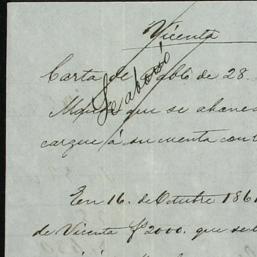 Vicenta
Carta de Pablo de 28.
Se abonó
que se abones
cargue á su cuenta con
En 16. de Octubre 186
de Vicenta $2000. que se